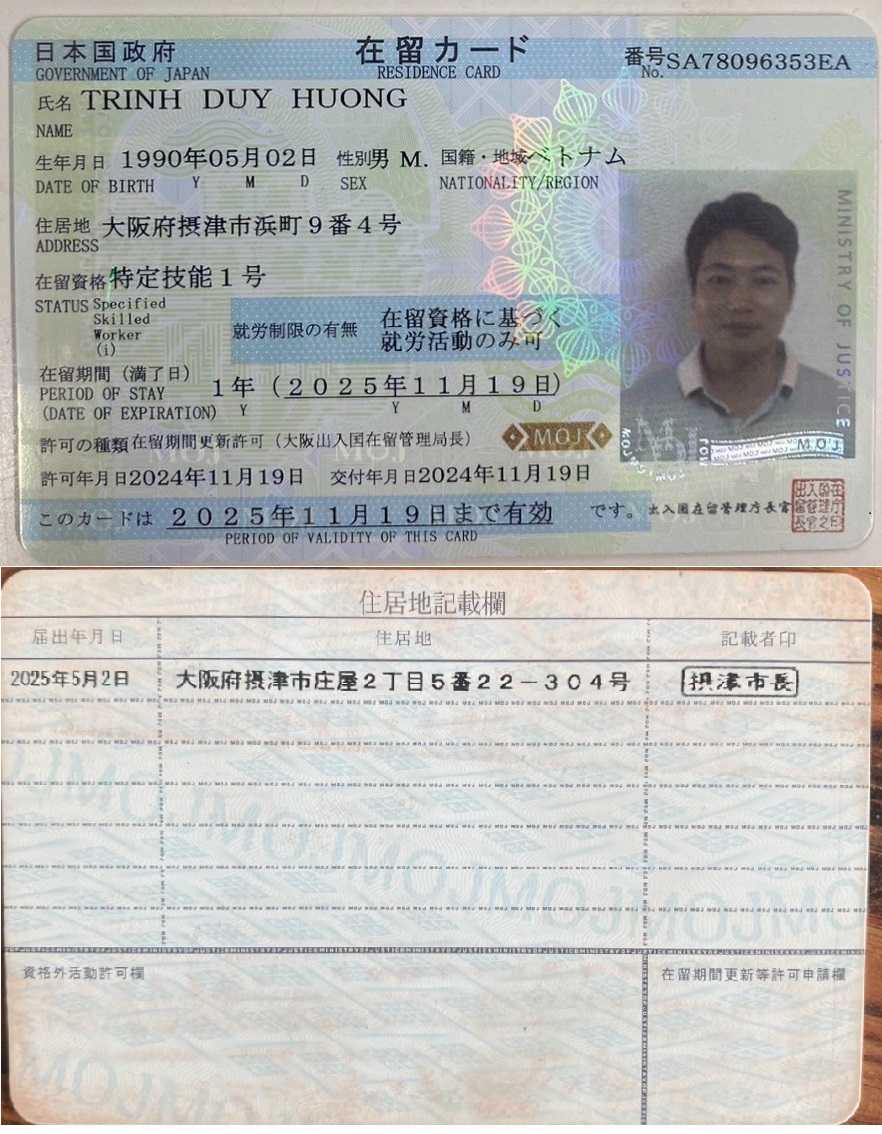 日本国政府 在留カード 番号 SA78096353EA
GOVERNMENT OF JAPAN RESIDENCE CARD No.
氏名 TRINH DUY HUONG
NAME
生年月日 1990年05月02日 性別 男 M. 国籍・地域 ベトナム
DATE OF BIRTH Y M D SEX NATIONALITY/REGION
住居地 大阪府摂津市浜町9番4号
ADDRESS
在留資格 特定技能1号
STATUS Specified
Skilled
Worker
(i)
就労制限の有無 在留資格に基づく
就労活動のみ可
在留期間(満了日)
PERIOD OF STAY 1年(2025年11月19日)
(DATE OF EXPIRATION) Y Y M D
許可の種類 在留期間更新許可(大阪出入国在留管理局長)
MOJ
許可年月日 2024年11月19日 交付年月日 2024年11月19日
このカードは 2025年11月19日まで有効 です。
PERIOD OF VALIDITY OF THIS CARD
出入国在留管理庁長官
MINISTRY OF JUSTICE
MOJ
住居地記載欄
届出年月日 住居地 記載者印
2025年5月2日 大阪府摂津市庄屋2丁目5番22-304号 摂津市長
資格外活動許可欄 在留期間更新等許可申請欄